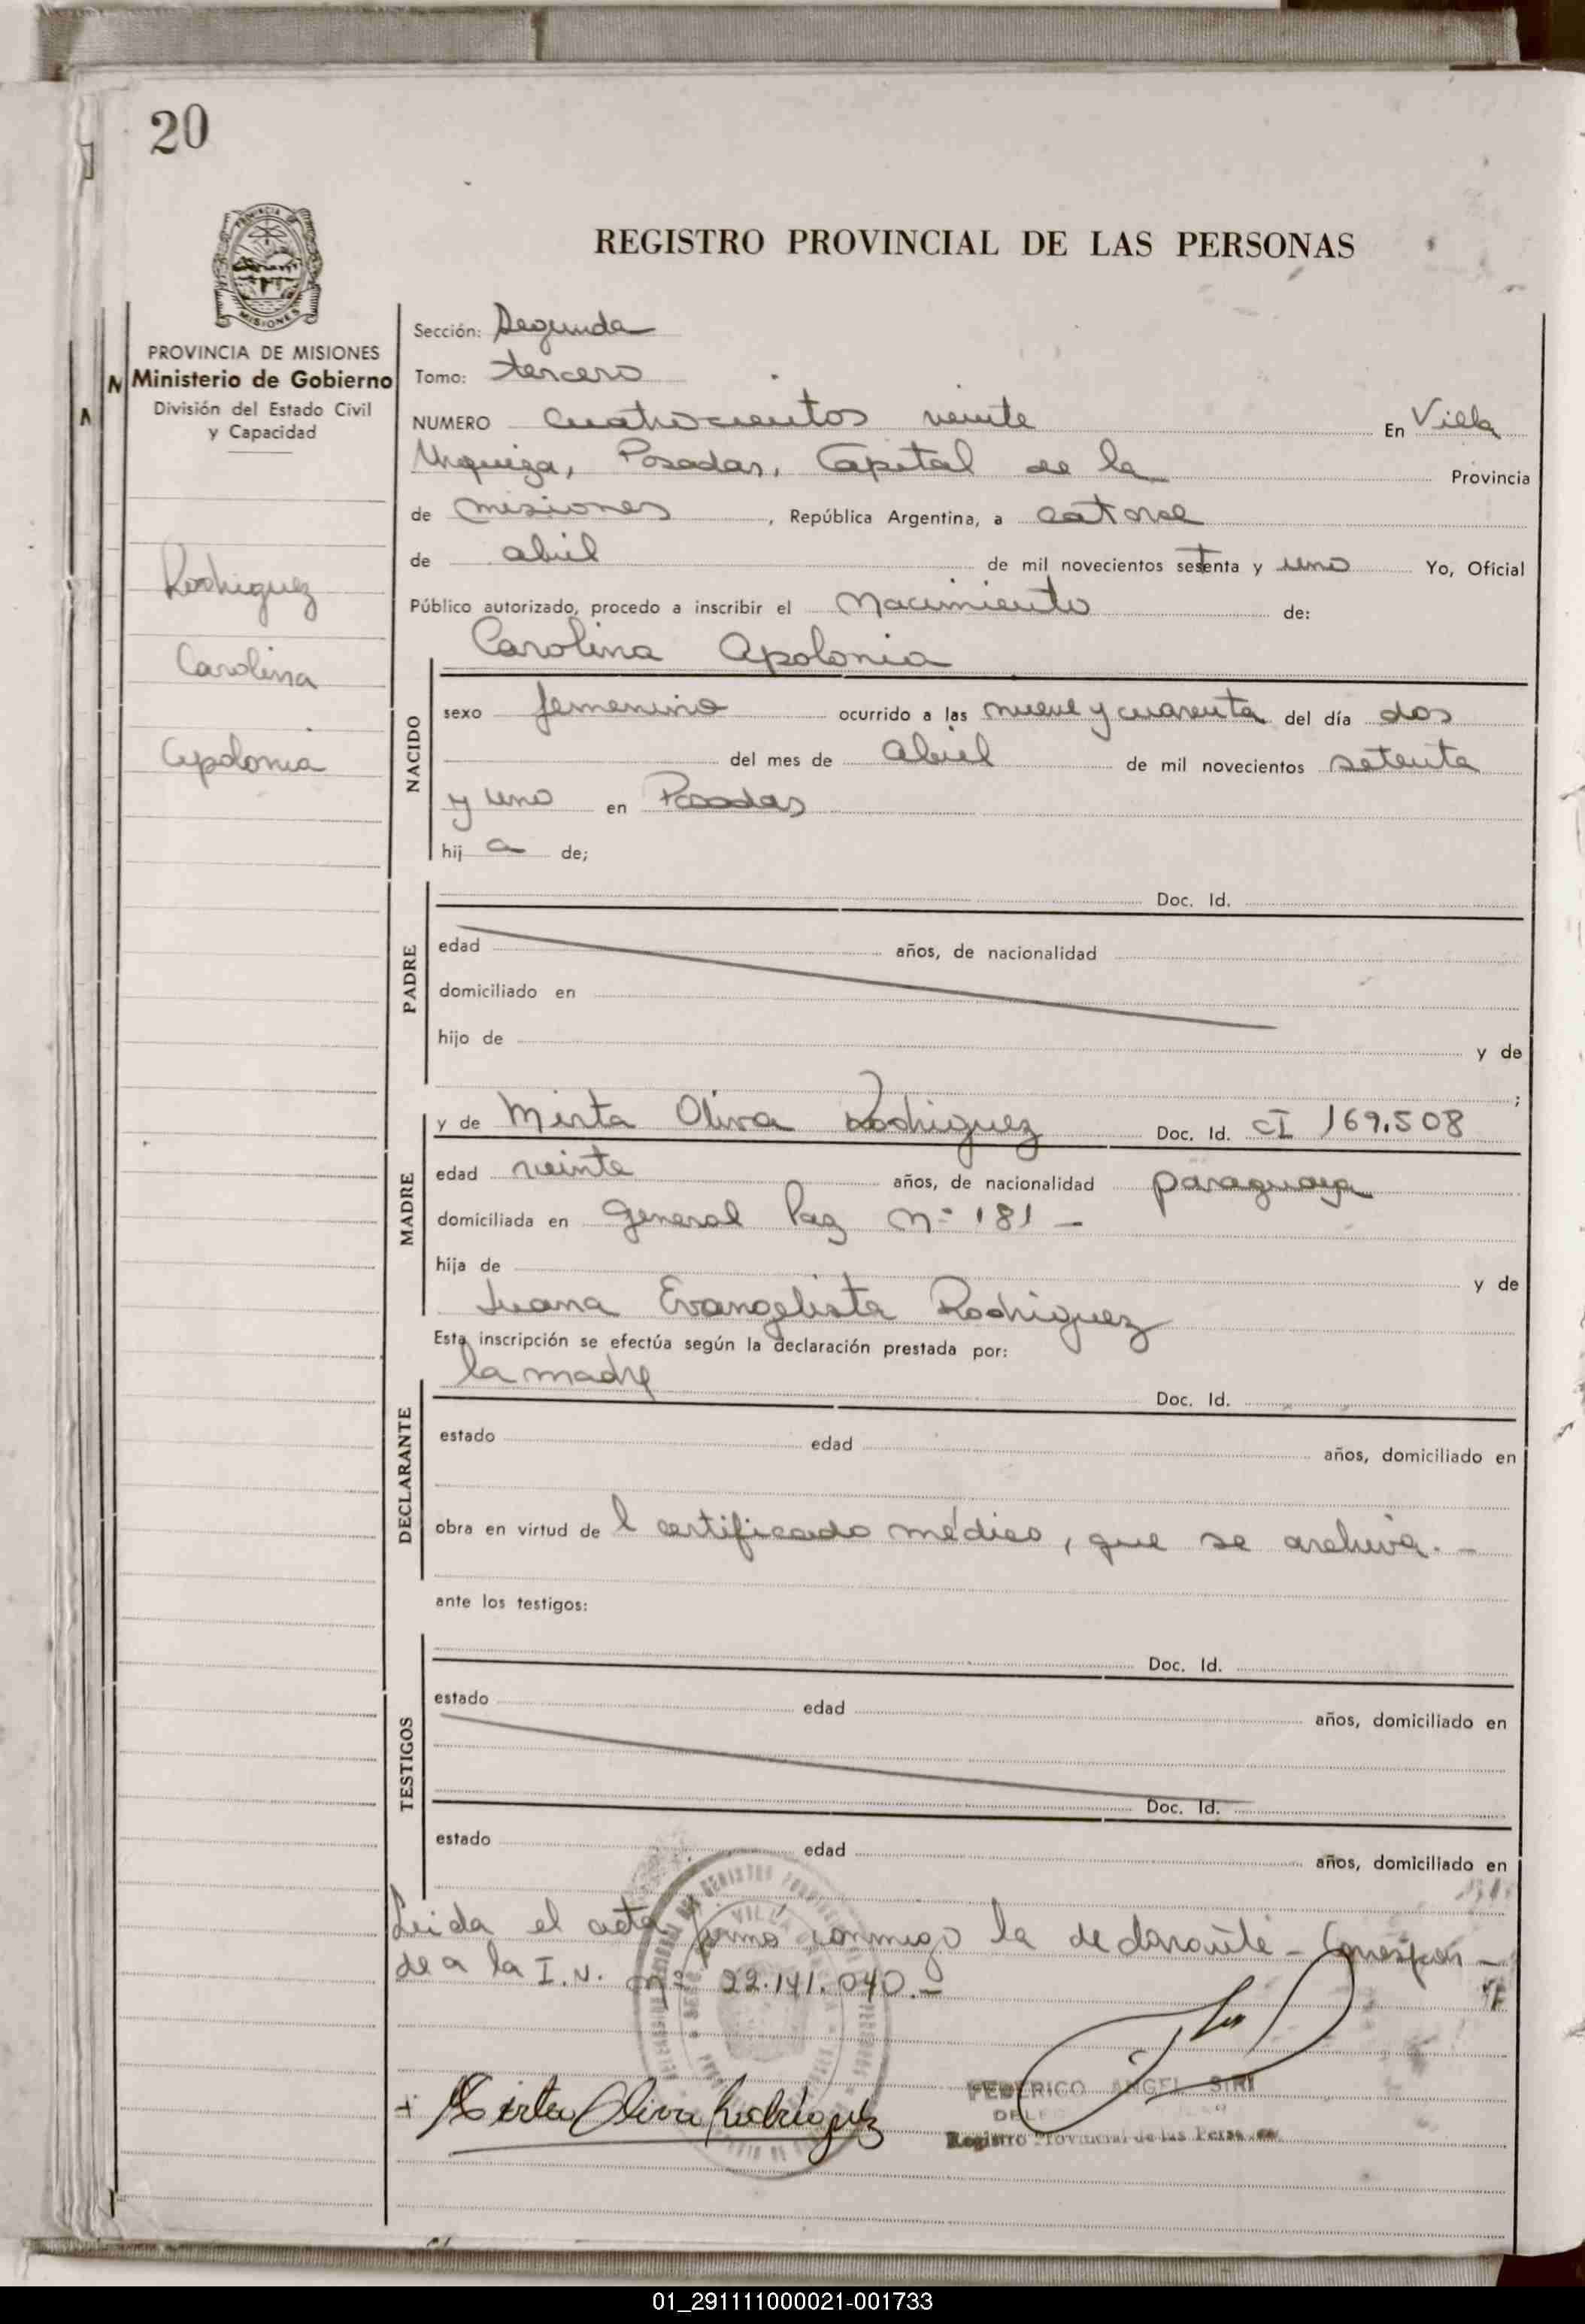 20
PROVINCIA DE MISIONES
Ministerio de Gobierno
División del Estado Civil
y Capacidad
Rodriguez
Carolina
Apolonia
REGISTRO PROVINCIAL DE LAS PERSONAS
Sección: Segunda
Tomo: tercero
NUMERO cuatrocientos veinte En Villa
Urquiza, Posadas, Capital de la Provincia
de misiones, República Argentina, a catorce
de abril de mil novecientos setenta y uno Yo, Oficial
Público autorizado, procedo a inscribir el Nacimiento de:
Carolina Apolonia
NACIDO
sexo femenino ocurrido a las nueve y cuarenta del día dos
del mes de abril de mil novecientos setenta
y uno en Posadas
hij a de;
PADRE
Doc. Id.
edad años, de nacionalidad
domiciliado en
hijo de y de
;
MADRE
y de Mirta Oliva Rodriguez Doc. Id. CI 169.508
edad veinte años, de nacionalidad paraguaya
domiciliada en General Paz Nº 181 -
hija de y de
Juana Evangelista Rodriguez
Esta inscripción se efectúa según la declaración prestada por:
DECLARANTE
la madre Doc. Id.
estado edad años, domiciliado en
obra en virtud de l certificado médico, que se archiva. -
ante los testigos:
TESTIGOS
Doc. Id.
estado edad años, domiciliado en
Doc. Id.
estado edad años, domiciliado en
Leida el acta, firmó conmigo la declarante - Correspon -
de a la I.N. nº 22.141.040. -
+ Mirta Oliva Rodriguez
FEDERICO ANGEL SIRI
Registro Provincial de las Personas
01_291111000021-001733